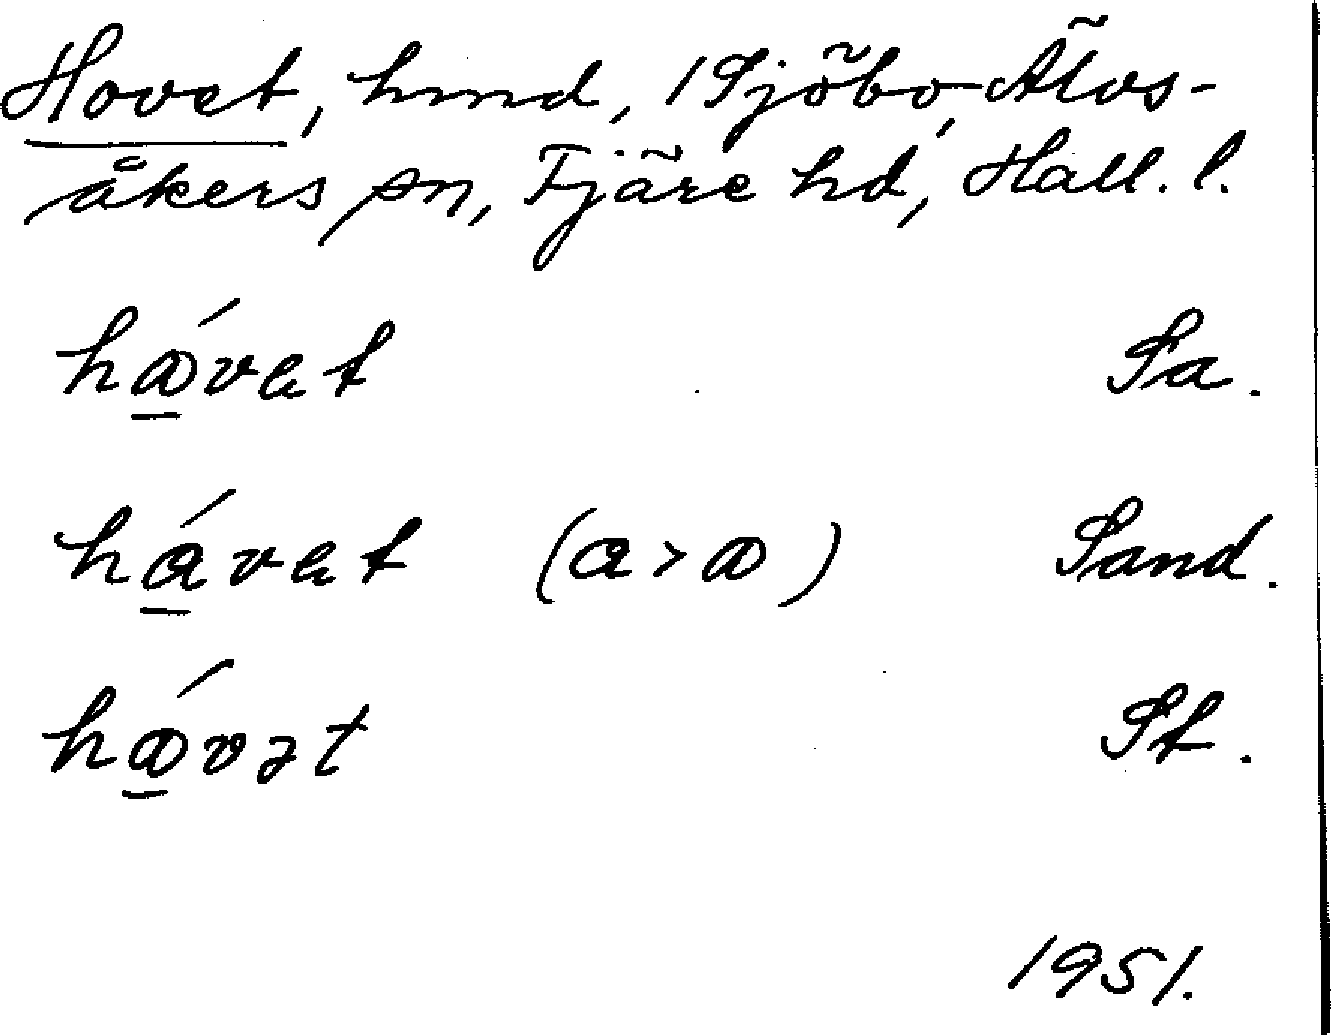 Hovet, hmd, 1 Sjöbo, Älvs-
åkers sn, Fjäre hd, Hall. l.
hꜵ̲́vet Sa.
há̲vet (a > ꜵ) Sand.
hꜵ̲́vət St.
1951.